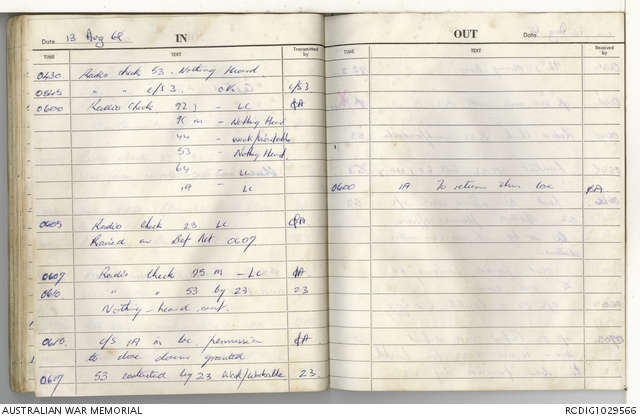 IN
Date 13 Aug 68
TIME TEXT Transmitted by
0430 Radio check 53. Nothing Heard
0545 " " c/s 3. c/s 3
0600 Radio Check 921 - LC
90 m - Nothing Heard
44 - weak/workable
53 - Nothing Heard
64 LC
1A - LC
0605 Radio Check 23 LC
on Def Net 0607
0607 Radio Check 75 m - LC
0610 " " 53 by 23 23
Nothing heard out.
0610 c/s 1A in loc permission
to close down granted
0617 53 contacted by 23 Weak/workable 23
OUT
Date
TIME TEXT Received by
0600 1A To return this loc
AUSTRALIAN WAR MEMORIAL
RCDIG1029566